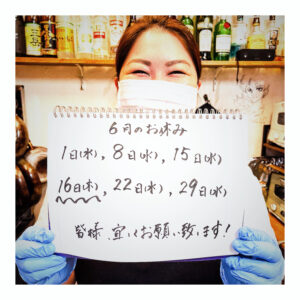 6月のお休み
1日(水), 8日(水), 15日(水)
16日(木), 22日(水), 29日(水)
皆様、宜しくお願い致します!